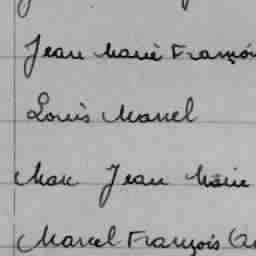 Jean Marie François
Louis Marcel
Marc Jean Marie
Marcel François